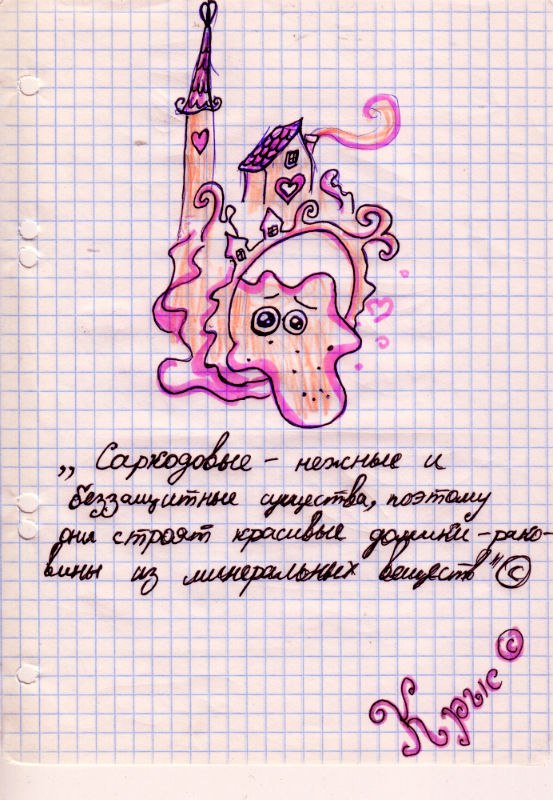 „Саркодовые – нежные и
беззащитные существа, поэтому
они строят красивые домики-рако-
вины из минеральных веществ" ©
Крыс ©